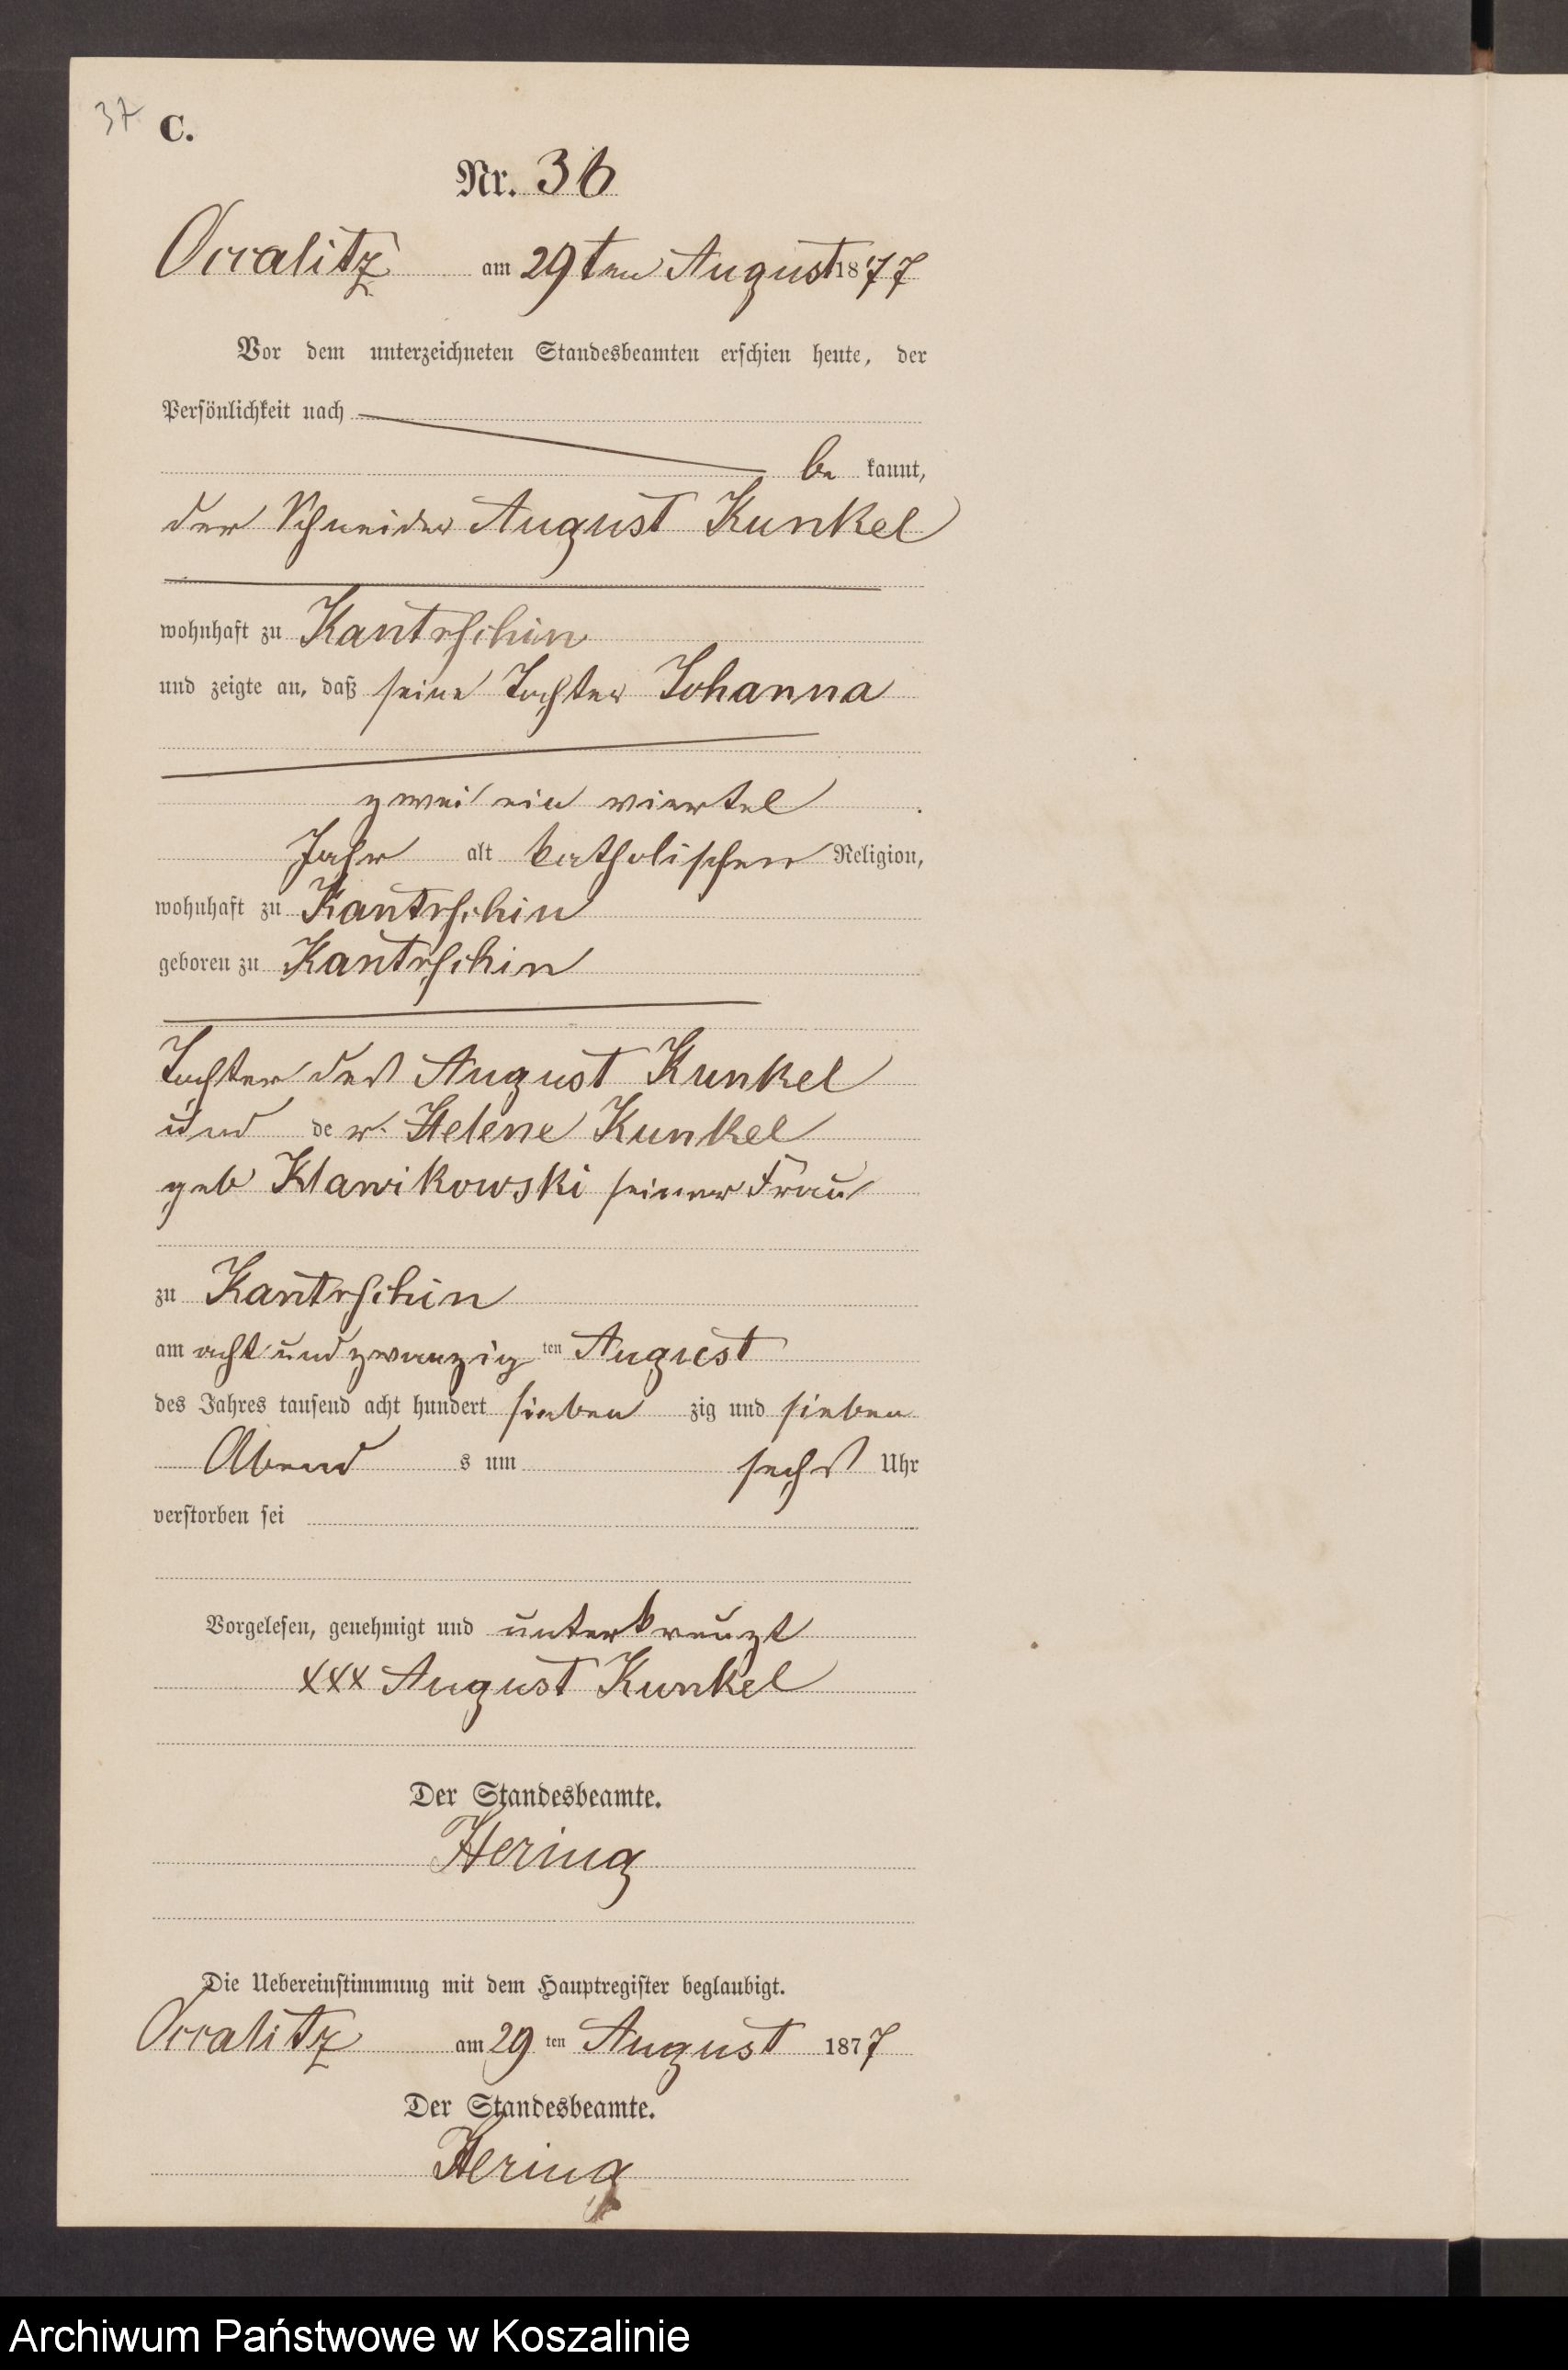 37
C.
Nr. 36
Occalitz am 29ten August 1877
Vor dem unterzeichneten Standesbeamten erschien heute, der
Persönlichkeit nach
be kannt,
der Schneider August Kunkel
wohnhaft zu Kantrschin
und zeigte an, daß seine Tochter Johanna
zwei ein viertel
Jahr alt katholischer Religion,
wohnhaft zu Kantrschin
geboren zu Kantrschin
Tochter des August Kunkel
und der Helene Kunkel
geb Klawikowski seiner Frau
zu Kantrschin
am acht und zwanzig ten August
des Jahres tausend acht hundert sieben zig und sieben
Abend s um sechs Uhr
verstorben sei
Vorgelesen, genehmigt und unterkreuzt
XXX August Kunkel
Der Standesbeamte.
Hering
Die Uebereinstimmung mit dem Hauptregister beglaubigt.
Occalitz am 29 ten August 1877
Der Standesbeamte.
Hering
Archiwum Państwowe w Koszalinie